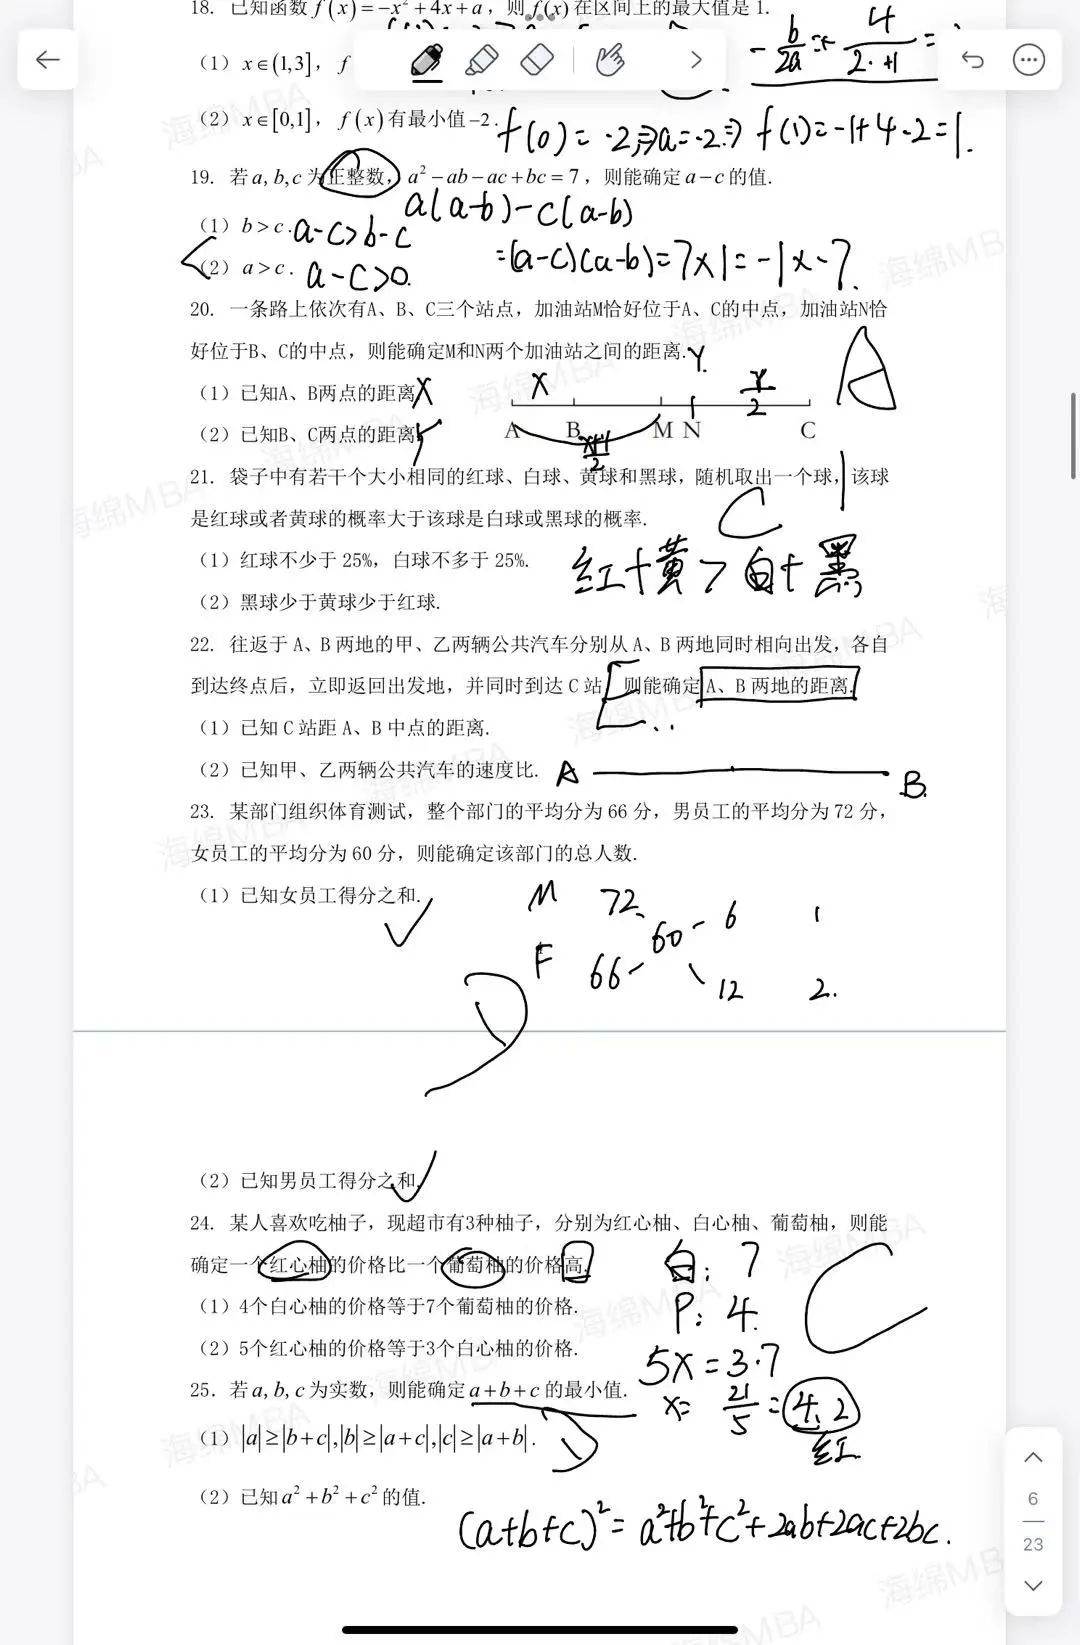 18. 已知函数 f(x)=-x²+4x+a，则 f(x) 在区间上的最大值是 1.
-b/2a = 4/2·+1 =
（1）x∈(1,3]，f
（2）x∈[0,1]，f(x)有最小值-2.
f(0)=-2,⇒a=-2.⇒ f(1)=-1+4-2=1.
19. 若a,b,c为正整数，a²-ab-ac+bc=7，则能确定a-c的值.
a(a-b)-c(a-b)
（1）b>c. a-c>b-c
=(a-c)(a-b)=7×1=-1×-7.
（2）a>c. a-c>0.
20. 一条路上依次有A、B、C三个站点，加油站M恰好位于A、C的中点，加油站N恰
好位于B、C的中点，则能确定M和N两个加油站之间的距离. Y.
（1）已知A、B两点的距离 X
X Y/2 A
（2）已知B、C两点的距离 Y
A B M N C
X+Y/2
21. 袋子中有若干个大小相同的红球、白球、黄球和黑球，随机取出一个球，该球
是红球或者黄球的概率大于该球是白球或黑球的概率. C
（1）红球不少于 25%，白球不多于 25%.
红+黄>白+黑
（2）黑球少于黄球少于红球.
22. 往返于 A、B 两地的甲、乙两辆公共汽车分别从 A、B 两地同时相向出发，各自
到达终点后，立即返回出发地，并同时到达 C 站，则能确定 A、B 两地的距离.
E
（1）已知 C 站距 A、B 中点的距离.
（2）已知甲、乙两辆公共汽车的速度比. A B.
23. 某部门组织体育测试，整个部门的平均分为 66 分，男员工的平均分为 72 分，
女员工的平均分为 60 分，则能确定该部门的总人数.
（1）已知女员工得分之和.
M 72 6 1
60
F 66 12 2.
D
（2）已知男员工得分之和.
24. 某人喜欢吃柚子，现超市有3种柚子，分别为红心柚、白心柚、葡萄柚，则能
确定一个红心柚的价格比一个葡萄柚的价格高.
白: 7
C
（1）4个白心柚的价格等于7个葡萄柚的价格.
P: 4.
（2）5个红心柚的价格等于3个白心柚的价格.
5X=3·7
25. 若a,b,c为实数，则能确定a+b+c的最小值.
X= 21/5 =4.2
（1）|a|≥|b+c|,|b|≥|a+c|,|c|≥|a+b|. D
红
（2）已知a²+b²+c²的值.
(a+b+c)²=a²+b²+c²+2ab+2ac+2bc.
6
23
海绵MBA